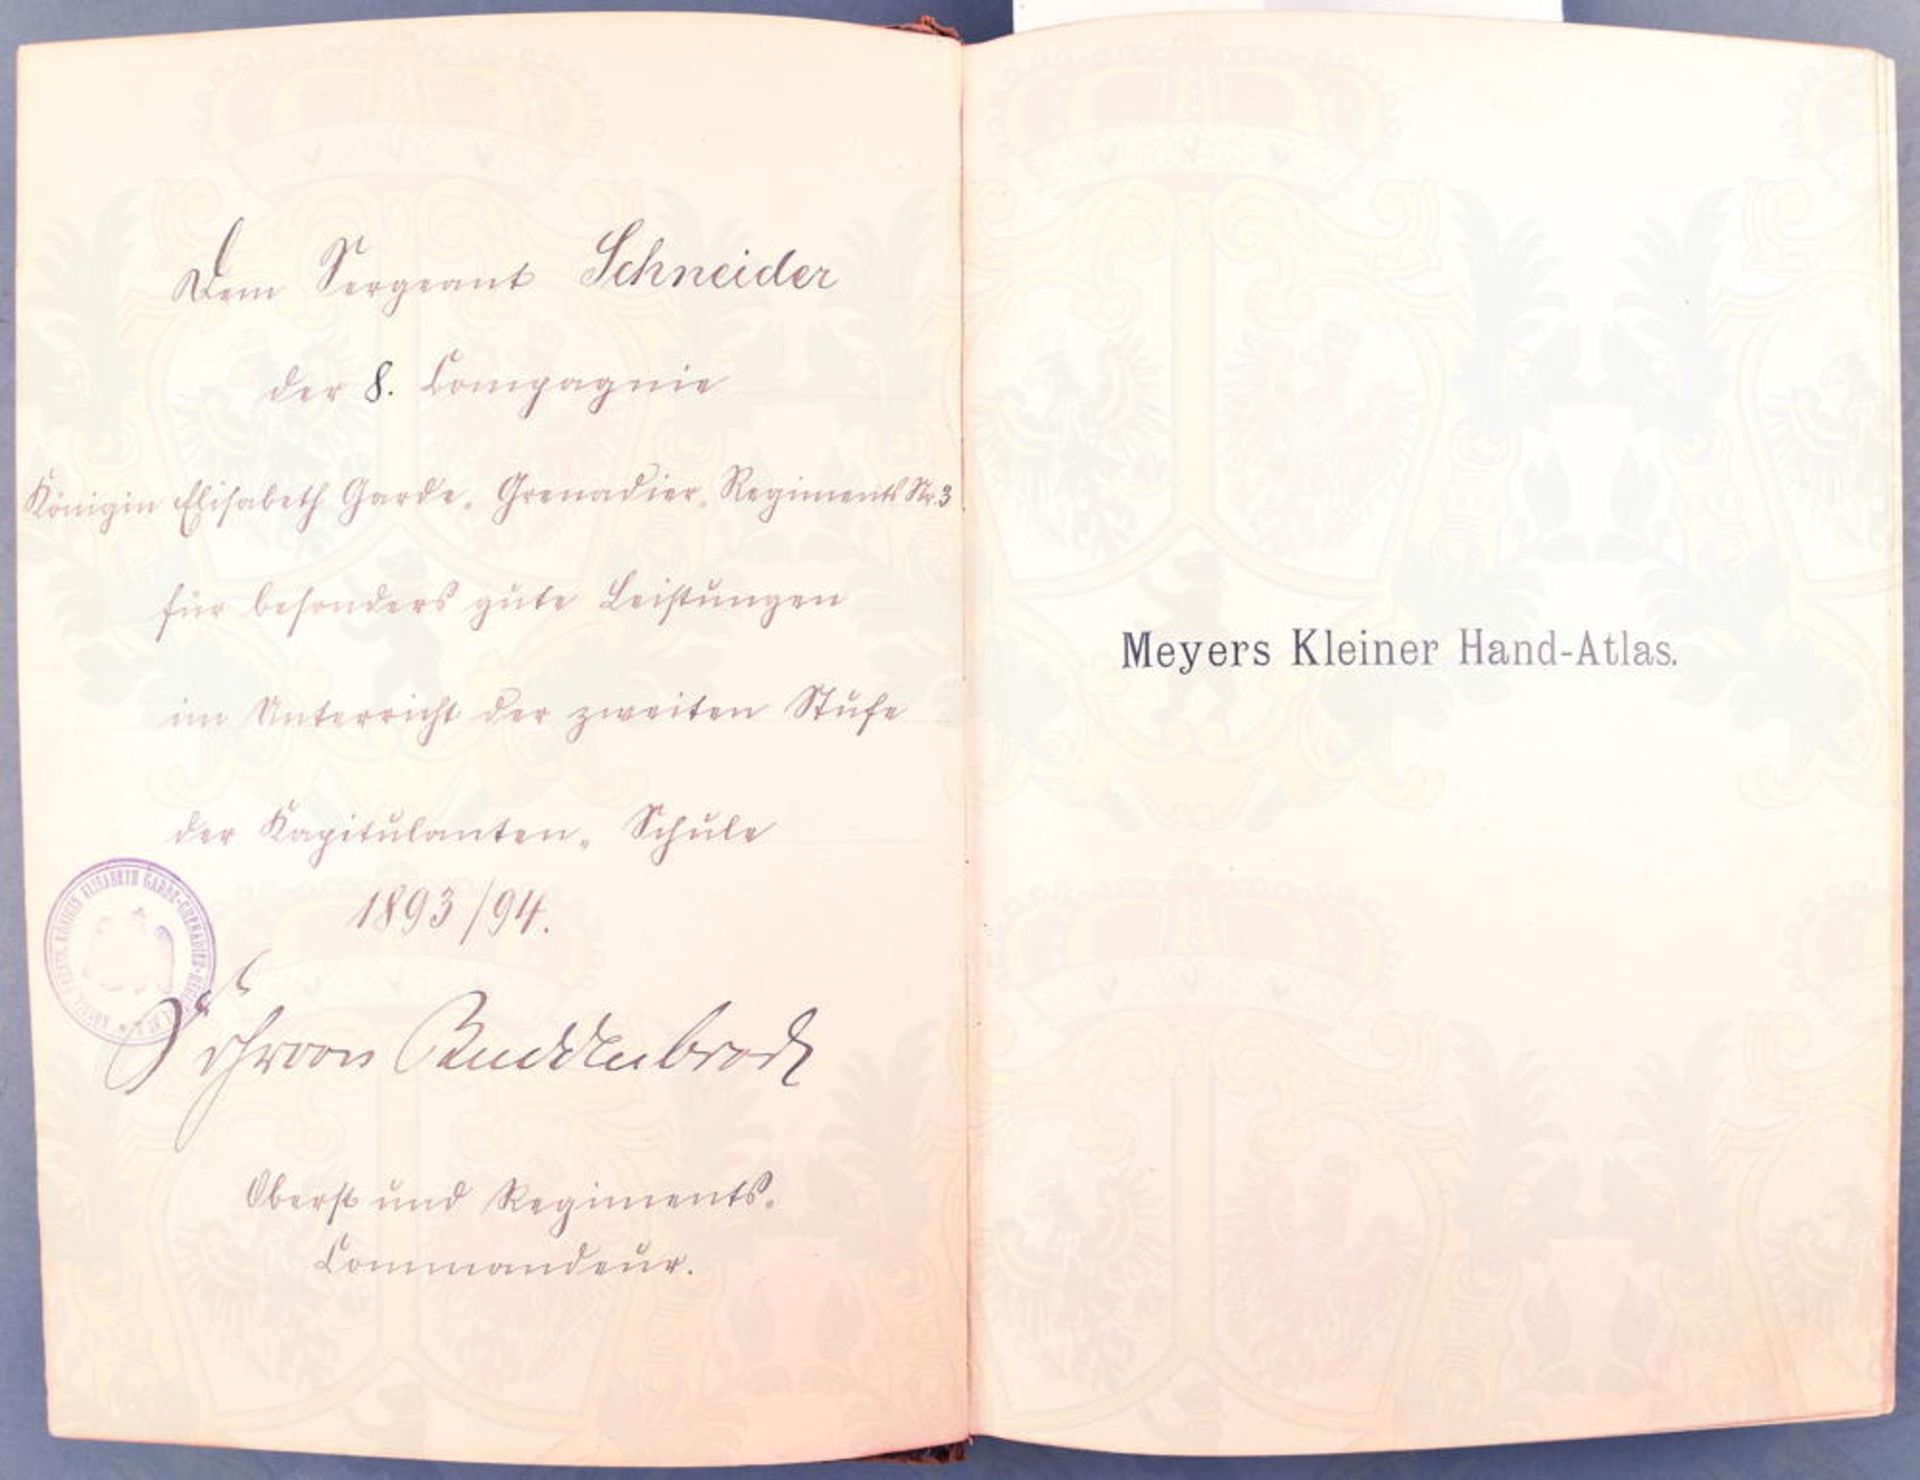 Dem Sergeant Schneider
der 8. Compagnie
Königin Elisabeth Garde-Grenadier-Regiments Nr. 3
für besonders gute Leistungen
im Unterricht der zweiten Stufe
der Kapitulanten-Schule
1893/94.
KÖNIGIN ELISABETH GARDE-GRENADIER-
Frhr von Buddenbrock
Oberst und Regiments-
Commandeur.
Meyers Kleiner Hand-Atlas.